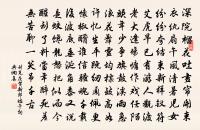 深院榴花吐畫帘開
衣紈扇午風清暑兒女
紛紛夸結束新樣釵符
艾虎早已有游人觀渡
老大逢場慵作戲任陌
頭年少爭旗鼓溪雨急
浪花舞靈均標致高如
許憶生平既紉蘭佩更
懷椒醑誰信騷魂千載
後波底垂涎角黍又說
是蛟饞龍怒把似而今
醒到了料當年醉死差
無苦聊一笑吊千古
克莊賀新郎端午